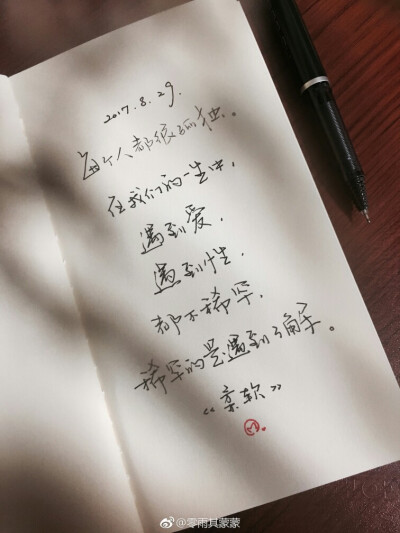 2017.8.29.
每个人都很孤独。
在我们的一生中,
遇到爱,
遇到性,
都不稀罕,
稀罕的是遇到了解。
《柔软》
@零雨其蒙蒙